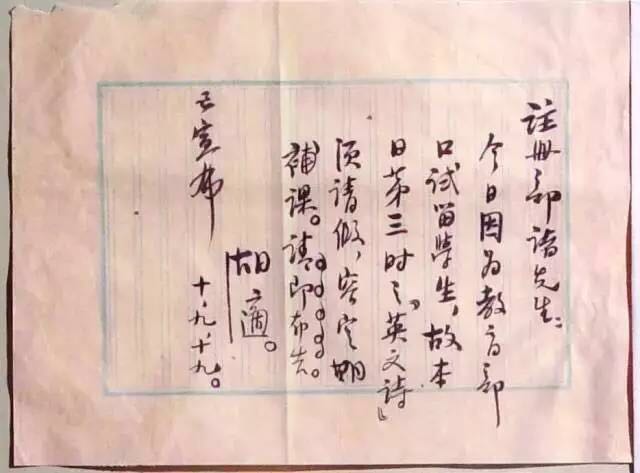 註冊部諸先生:
今日因为教育部
口试留学生,故本
日第三时之『英文诗』
须请假,容定期
補课。请即布告。
胡適。
十、九、十九。
已宣布